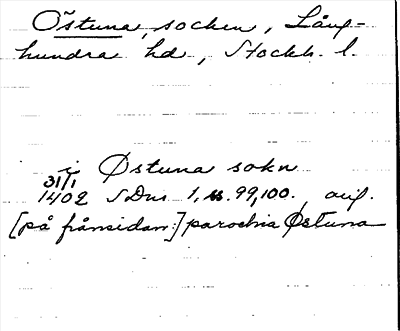 Östuna socken, Lång-
hundra hd, Stockh. l.
i Østuna sokn
31/1
1402 SDns 1, s. 99, 100. orig.
[på frånsidan:] parochia Østuna